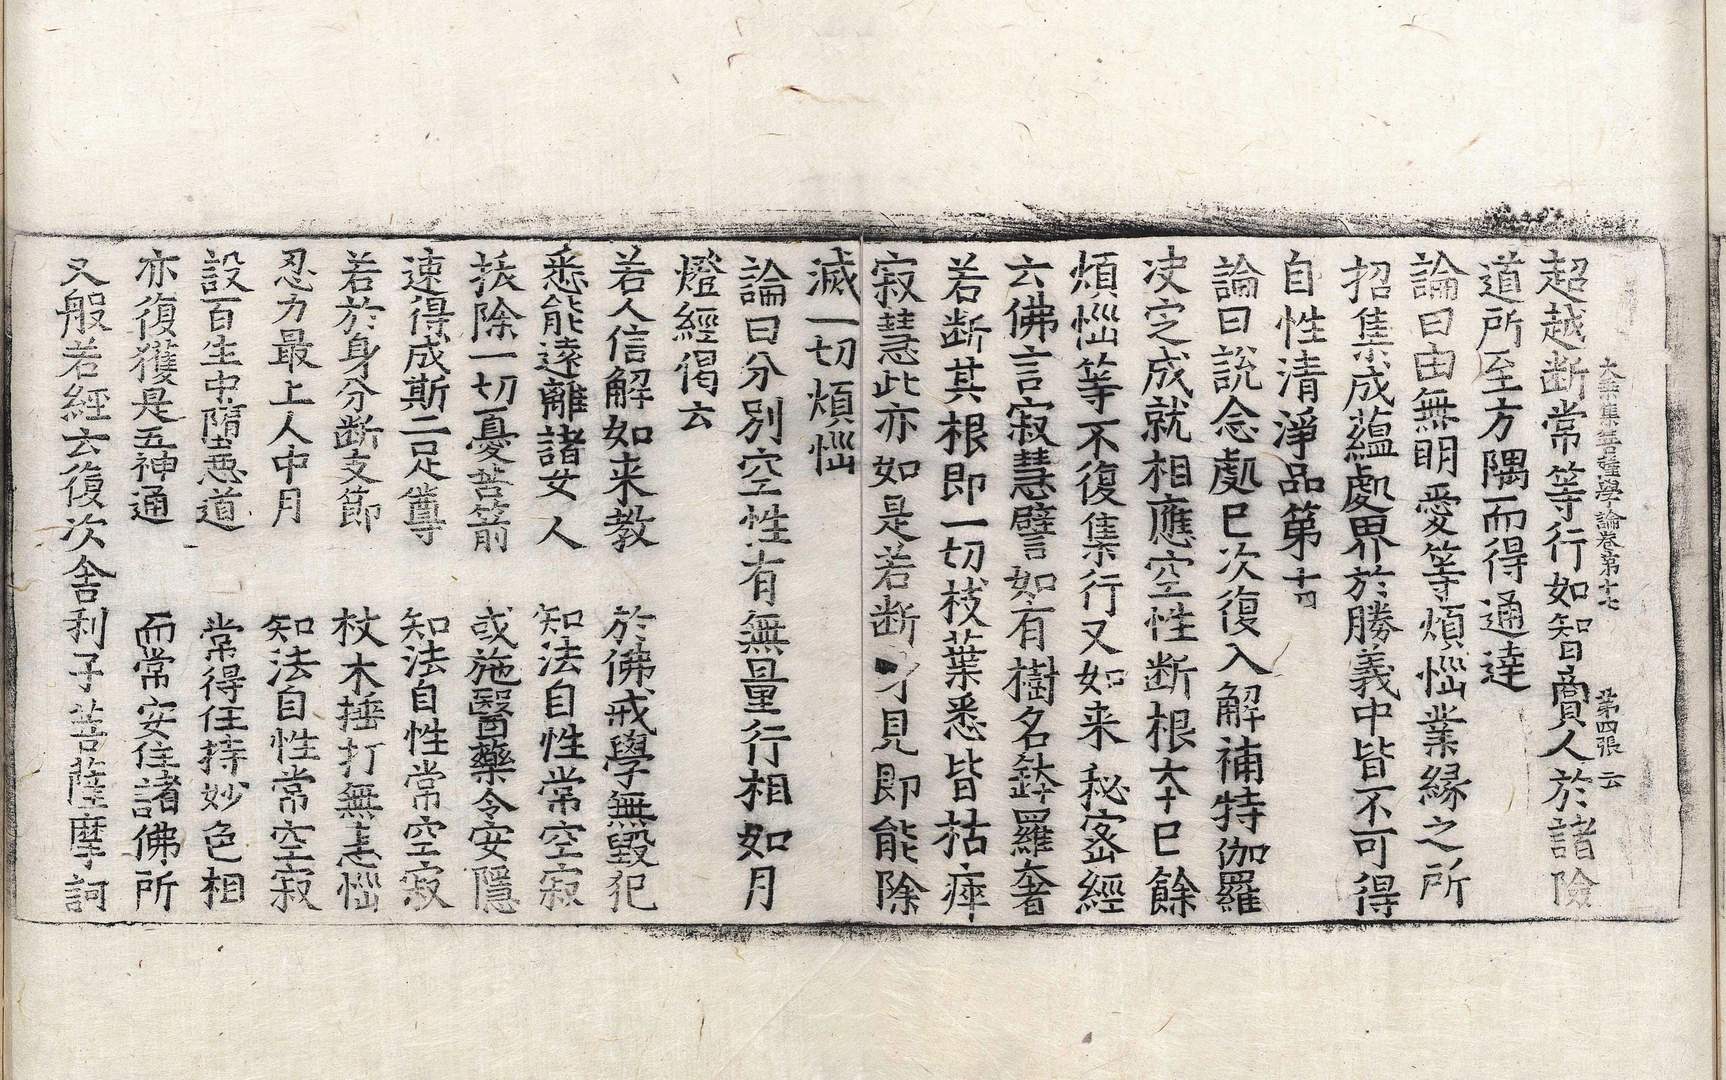 大乗集菩薩學論卷第十七 第四張 云
超越断常等行如智商人於諸險
道所至方隅而得通達
論曰由無明愛等煩惱業緣之所
招集成蘊處界於勝義中皆不可得
自性清淨品第十四
論曰說念處已次復入解補特伽羅
決定成就相應空性断根本已餘
煩惱等不復集行又如来秘密經
云佛言寂慧譬如有樹名鉢羅奢
若断其根即一切枝葉悉皆枯瘁
寂慧此亦如是若断身見即能除
滅一切煩惱
論曰分別空性有無量行相如月
燈經偈云
若人信解如来教 於佛戒學無毀犯
悉能遠離諸女人 知法自性常空寂
拔除一切憂苦箭 或施醫藥令安隱
速得成斯二足尊 知法自性常空寂
若於身分断支節 杖木捶打無恚惱
忍力最上人中月 知法自性常空寂
設百生中墮惡道 常得住持妙色相
亦復獲是五神通 而常安住諸佛所
又般若經云復次舍利子菩薩摩訶